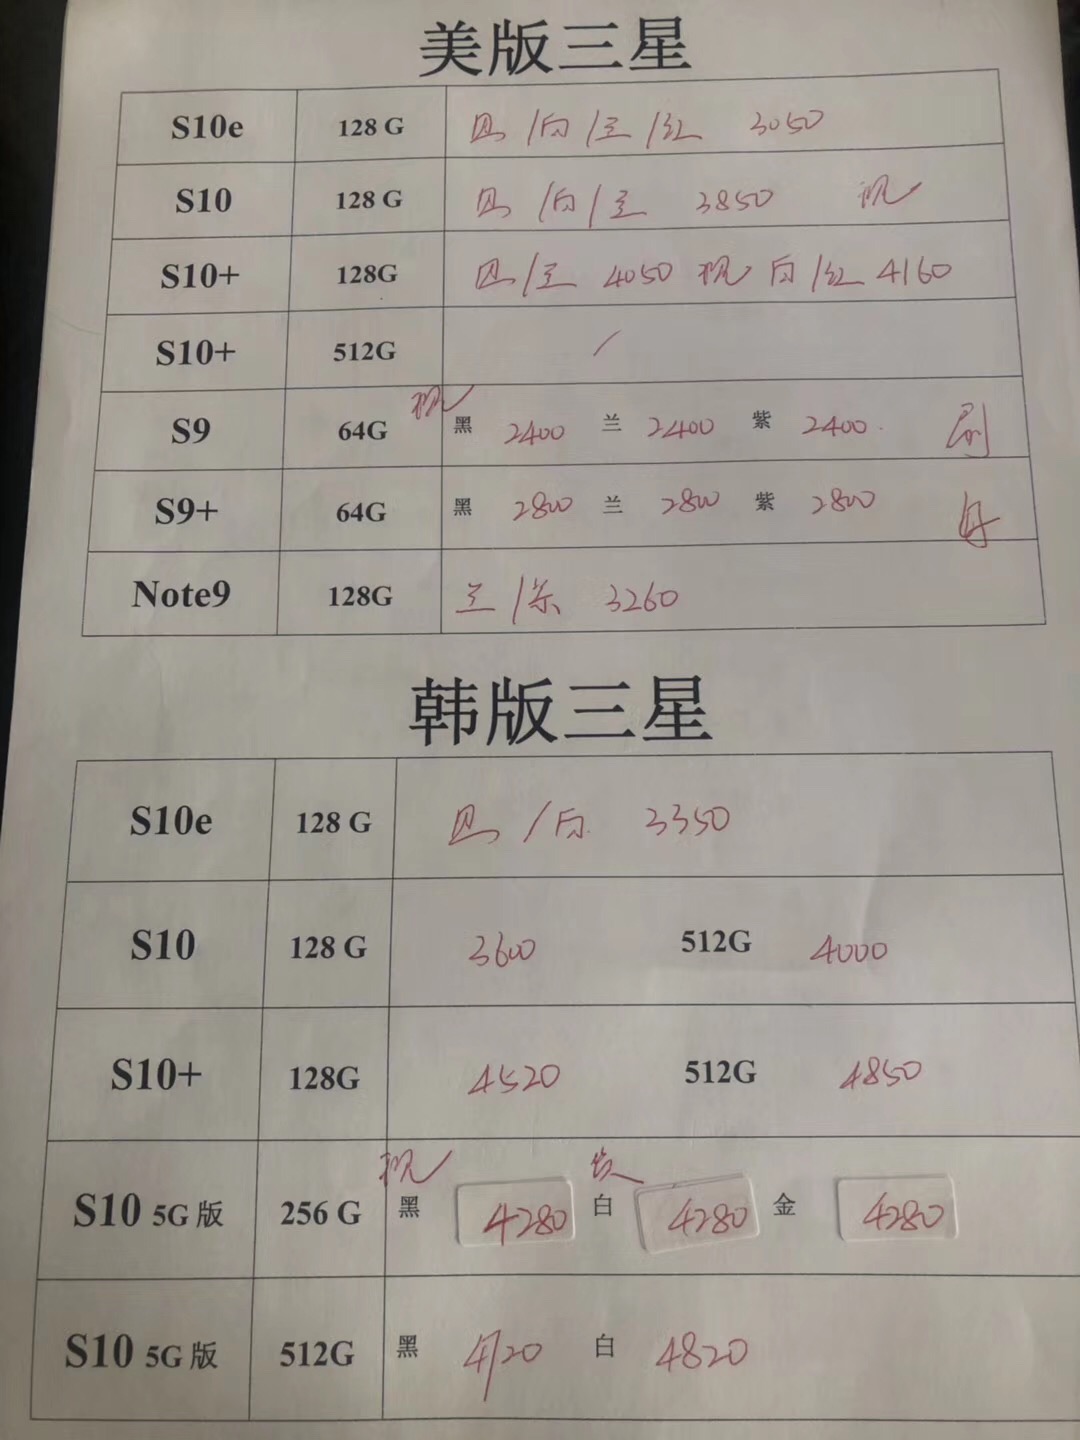 美版三星
S10e 128 G 黑/白/兰/红 3050
S10 128 G 黑/白/兰 3850 现
S10+ 128G 黑/兰 4050 现 白/红 4160
S10+ 512G /
S9 64G 现 黑 2400 兰 2400 紫 2400 刷
S9+ 64G 黑 2800 兰 2800 紫 2800
Note9 128G 兰/紫 3260
韩版三星
S10e 128 G 黑/白 3350
S10 128 G 3600 512G 4000
S10+ 128G 4520 512G 4850
S10 5G版 256 G 现 黑 4280 白 4280 金 4280
S10 5G版 512G 黑 白 4820